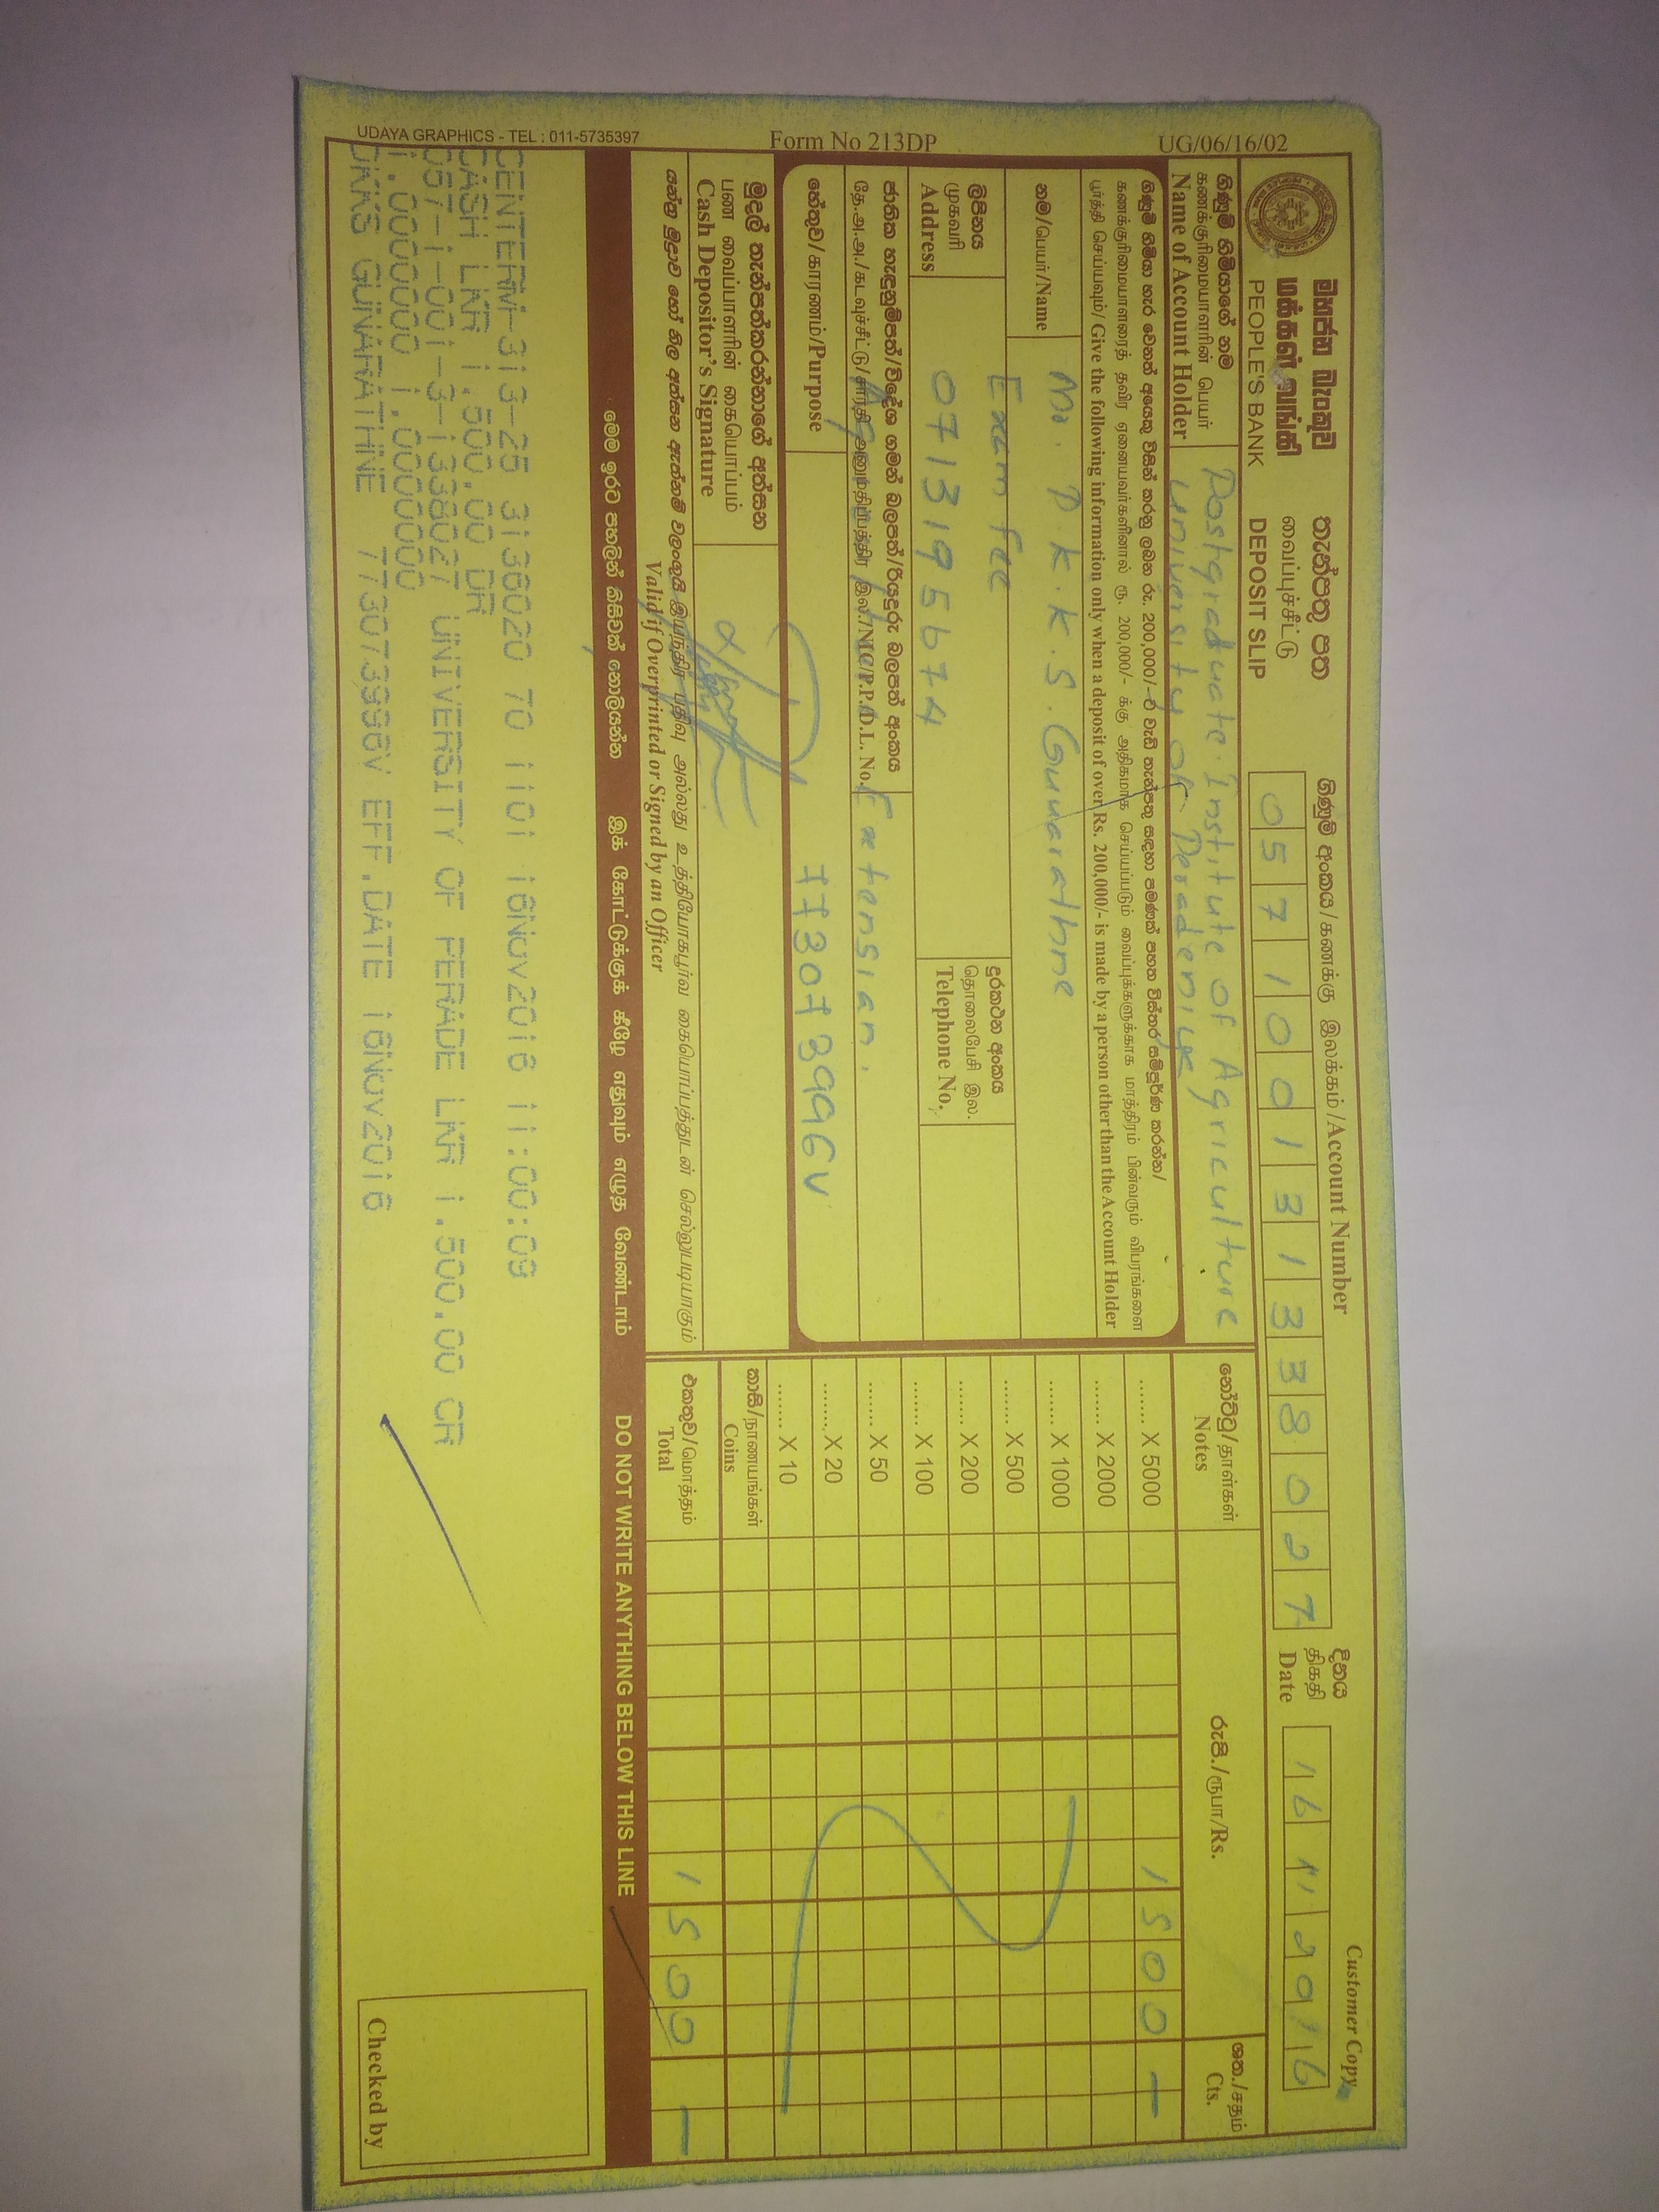 Customer Copy
මහජන බැංකුව
மக்கள் வங்கி
PEOPLE'S BANK
තැන්පතු පත
வைப்புச்சீட்டு
DEPOSIT SLIP
ගිණුම් අංකය/கணக்கு இலக்கம்/Account Number
057100131338027
දිනය
திகதி
Date
16 11 2016
ගිණුම් හිමියාගේ නම
கணக்குரிமையாளரின் பெயர்
Name of Account Holder
Postgraduate Institute of Agriculture
University of Peradeniya
ගිණුම් හිමියා හැර වෙනත් අයෙකු විසින් කරනු ලබන රු. 200,000/- ට වැඩි තැන්පතු සඳහා පමණක් පහත විස්තර සම්පූර්ණ කරන්න/
கணக்குரிமையாளரைத் தவிர ஏனையவர்களினால் ரூ. 200,000/- க்கு அதிகமாக செய்யப்படும் வைப்புக்களுக்காக மாத்திரம் பின்வரும் விபரங்களை
பூர்த்தி செய்யவும்/ Give the following information only when a deposit of over Rs. 200,000/- is made by a person other than the Account Holder
නම/பெயர்/Name
Mr. D.K.K.S. Gunarathne
Exam fee
ලිපිනය
முகவரி
Address
0713195674
දුරකථන අංකය
தொலைபேசி இல.
Telephone No.
ජාතික හැඳුනුම්පත්/විදේශ ගමන් බලපත්/රියදුරු බලපත් අංකය
தே.அ.அ./கடவுச்சீட்டு/சாரதி அனுமதிப்பத்திர இல./NIC/P.P./D.L. No.
Extension.
හේතුව/காரணம்/Purpose
773073996V
මුදල් තැන්පත්කරන්නාගේ අත්සන
பண வைப்பாளரின் கையொப்பம்
Cash Depositor's Signature
යන්ත්‍ර මුද්‍රාව හෝ නිල අත්සන ඇත්නම් වලංගුයි இயந்திர பதிவு அல்லது உத்தியோகபூர்வ கையொப்பத்துடன் செல்லுபடியாகும்
Valid if Overprinted or Signed by an Officer
නෝට්ටු/தாள்கள்
Notes
රුපි./ரூபா/Rs.
ශත./சதம்
Cts.
....... X 5000 1500 —
....... X 2000
....... X 1000
....... X 500
....... X 200
....... X 100
....... X 50
....... X 20
....... X 10
කාසි/நாணயங்கள்
Coins
එකතුව/மொத்தம்
Total
1500 —
මෙම ඉරට පහලින් කිසිවක් නොලියන්න இக் கோட்டுக்குக் கீழே எதுவும் எழுத வேண்டாம் DO NOT WRITE ANYTHING BELOW THIS LINE
CENTERM-313-25 3136020 70 1101 16Nov2016 11:00:09
CASH LKR 1.500.00 DR
057-1-001-3-1338027 UNIVERSITY OF PERADE LKR 1.500.00 CR
1.0000000 1.0000000
DKKS GUNARATHNE 773073996V EFF.DATE 16Nov2016
Checked by
UG/06/16/02
Form No 213DP
UDAYA GRAPHICS - TEL : 011-5735397